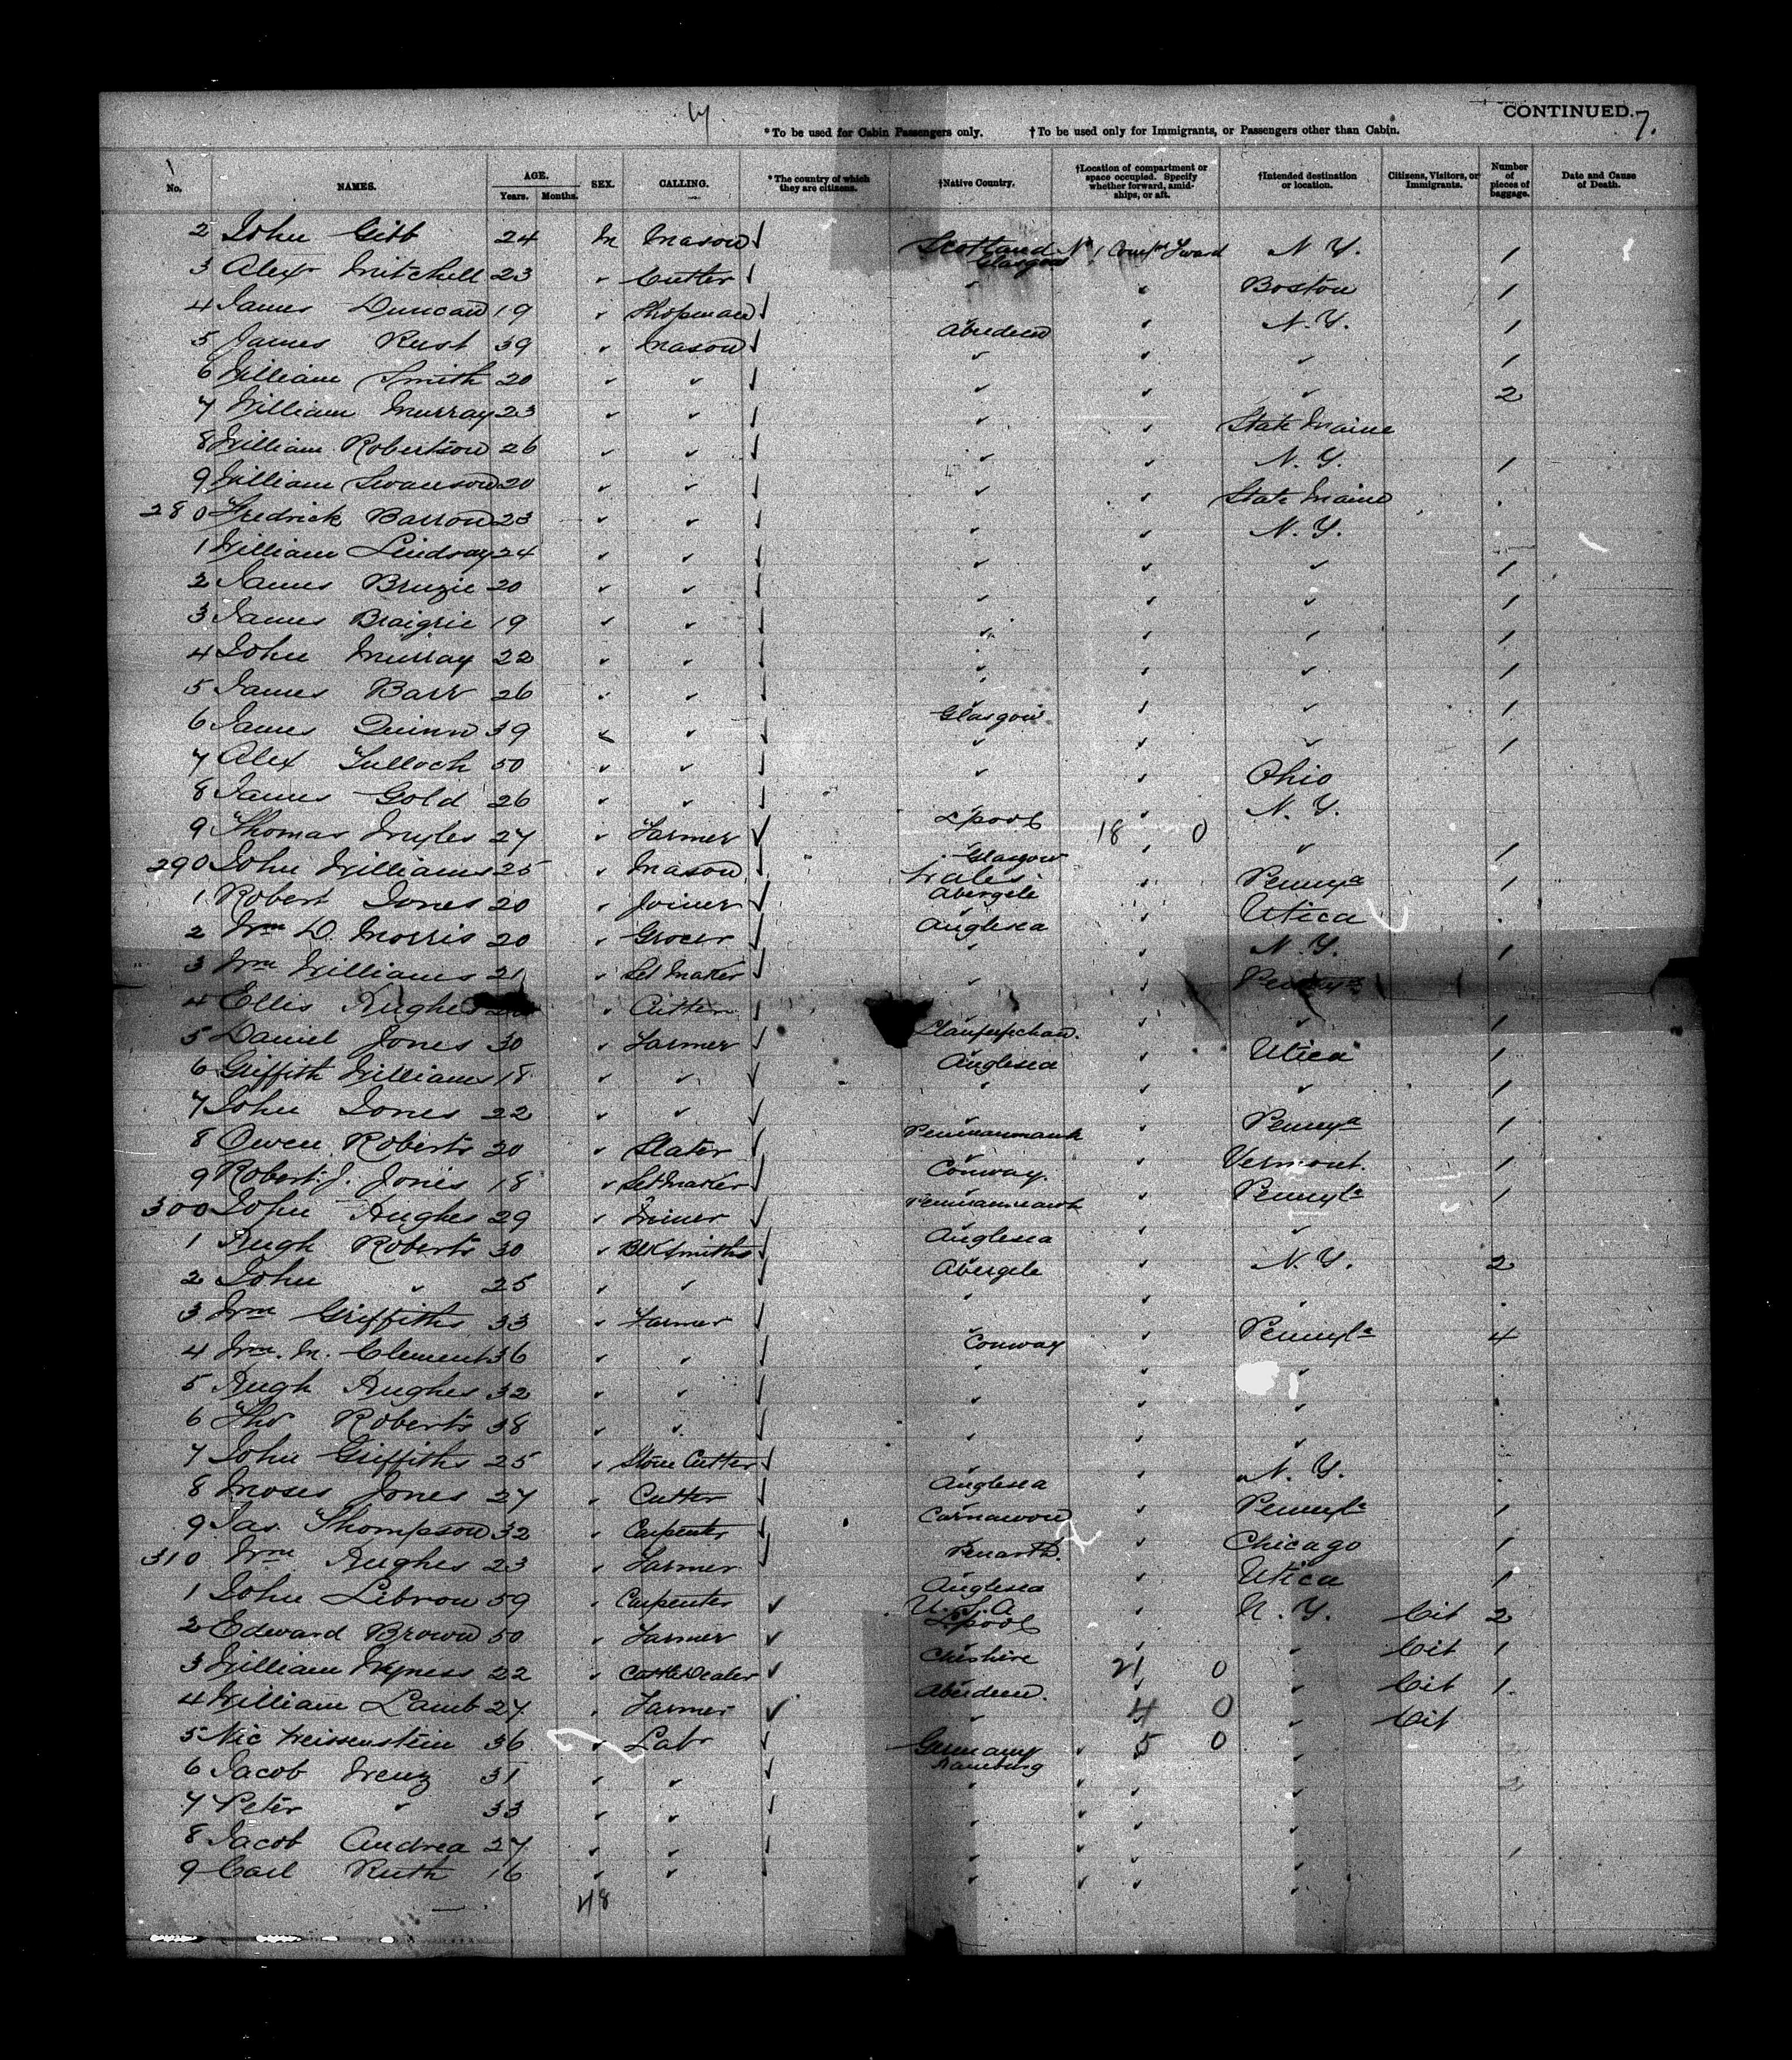 CONTINUED. 7.
*To be used for Cabin Passengers only. †To be used only for Immigrants, or Passengers other than Cabin.
No. NAMES. AGE. Years. Months. SEX. CALLING. *The country of which they are citizens. †Native Country. †Location of compartment or space occupied. Specify whether forward, amidships, or aft. †Intended destination or location. Citizens, Visitors, or Immigrants. Number of pieces of baggage. Date and Cause of Death.
2 John Gibb 24 M Mason Scotland Glasgow No 1 Compt Fward N. Y. 1
3 Alexr Mitchell 23 " Cutter " " Boston 1
4 James Duncan 19 " Shopman Aberdeen " N. Y. 1
5 James Rust 39 " Mason " " " 1
6 William Smith 20 " " " " " 2
7 William Murray 23 " " " " State Maine
8 William Robertson 26 " " " " N. Y. 1
9 William Swanson 20 " " " " State Maine
280 Fredrick Barron 23 " " " " N. Y.
1 William Lindsay 24 " " " " " 1
2 James 20 " " " " " 1
3 James 19 " " " " " 1
4 John Murray 22 " " " " " 1
5 James Barr 26 " " Glasgow " " 1
6 James Quinn 39 " " " " " 1
7 Alex Tulloch 50 " " " " Ohio
8 James Gold 26 " " Lpool " N. Y.
9 Thomas Myles 27 " Farmer Glasgow 18 0 " " 1
290 John Williams 25 " Mason Wales Abergele " Pennya 1
1 Robert Jones 20 " Joiner Anglesea " Utica
2 Wm D. Morris 20 " Grocer " " N. Y. 1
3 Wm Williams 21 " Set Maker " " Pennya
4 Ellis Hughes " Cutter " " 1
5 Daniel Jones 30 " Farmer Anglesea " Utica 1
6 Griffith Williams 18 " " " " " 1
7 John Jones 22 " " " Pennya 1
8 Owen Roberts 20 " Slater Conway. " Vermont. 1
9 Robert J. Jones 18 " Set Maker " Pennyla 1
300 John Hughes 29 " Miner Anglesea " "
1 Hugh Roberts 30 " Blk Smiths Abergele " N. Y. 2
2 John " 25 " " " " "
3 Wm Griffiths 33 " Farmer Conway " Pennyla 4
4 Wm. M. Clement 36 " " " " "
5 Hugh Hughes 32 " " " " "
6 Tho Roberts 38 " " " " "
7 John Griffiths 25 " Stone Cutter Anglesea " N. Y.
8 Moses Jones 27 " Cutter Carnarvon " Pennyla 1
9 Jas Thompson 32 " Carpenter Penarth. " Chicago 1
310 Wm Hughes 23 " Farmer Anglesea " Utica 1
1 John Lebron 59 " Carpenter U. S. A Lpool " N. Y. Cit 2
2 Edward Brown 50 " Farmer Cheshire " " Cit 1
3 William Wyness 22 " Cattle Dealer Aberdeen. 21 0 " " Cit 1
4 William Lamb 27 " Farmer " 4 0 " Cit
5 Nic Weissenstein 36 " Labr Germany Hamburg " 5 0 "
6 Jacob Wenz 31 " " " " "
7 Peter " 33 " " " " "
8 Jacob Andrea 27 " " " " " 1
9 Carl Ruth 16 " " " " "
48